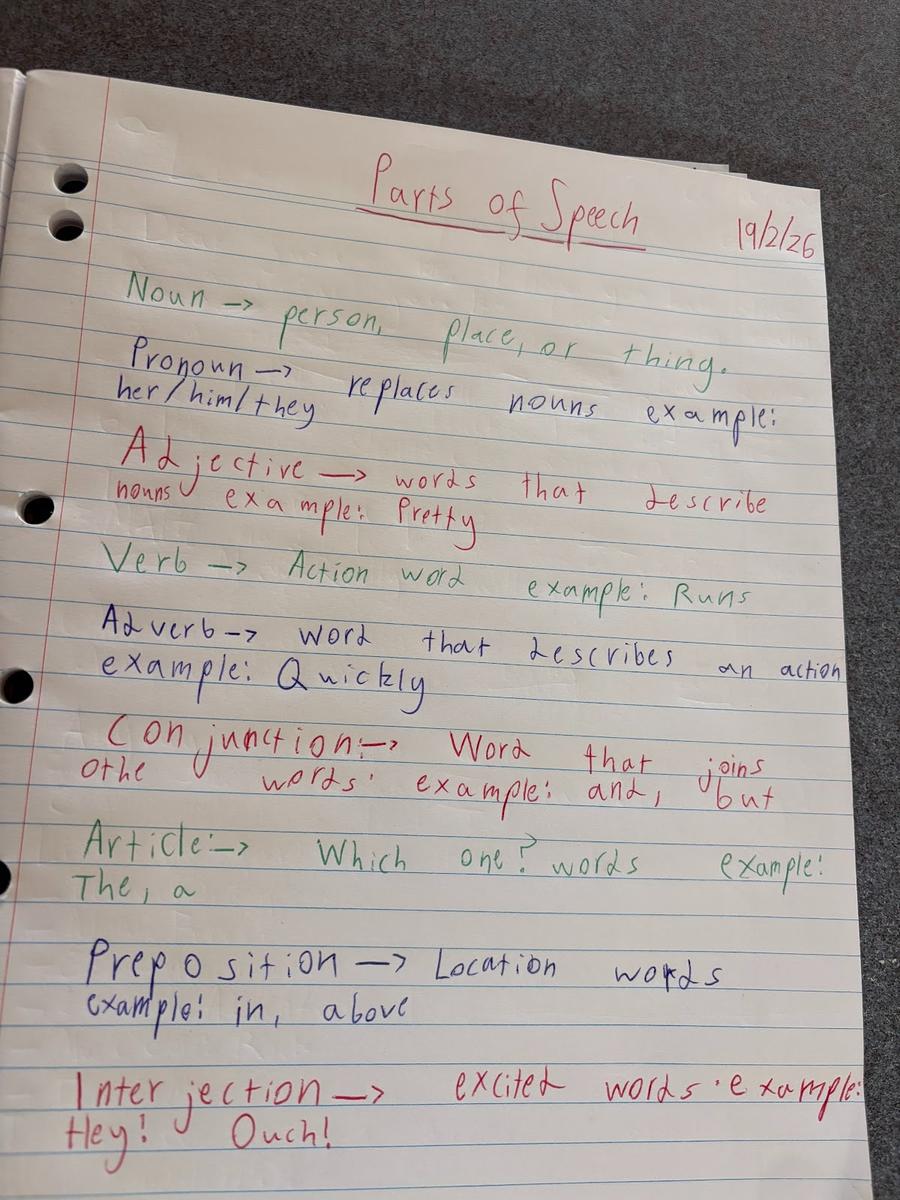 Parts of Speech
19/2/26
Noun -> person, place, or thing.
Pronoun -> replaces nouns example:
her/him/they
Adjective -> words that describe
nouns example: Pretty
Verb -> Action word example: Runs
Adverb -> word that describes an action
example: Quickly
Conjunction:-> Word that joins
othe words. example: and, but
Article:-> Which one? words example:
The, a
Preposition -> Location words
example: in, above
Interjection -> excited words. example:
Hey! Ouch!